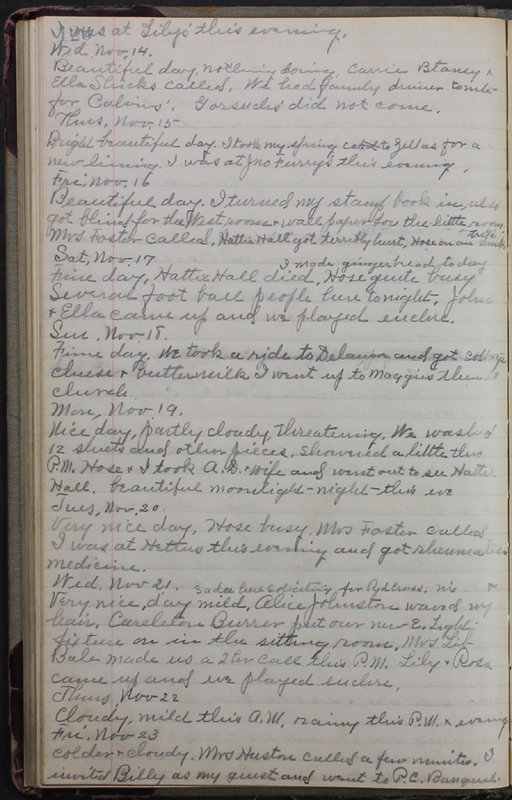 126
I was at Lily's this evening.
Wed, Nov, 14.
Beautiful day, nothing doing, Carrie Blaney &
Ella Shicks called, We had family dinner tonite
for Calvins'. Gorsuchs' did not come.
Thurs, Nov. 15
Bright beautiful day. I took my spring coat to Zellas for a
new lining. I was at Jno Furry's this evening.
Fri, Nov. 16
Beautiful day. I turned my stamp book in, also
got blind for the West room & wall paper for the little room
Mrs Foster called, Hattie Hall got terribly hurt, Hose on an amb. trip.
Sat, Nov. 17 I made gingerbread to day
Fine day, Hattie Hall died, Hose quite busy
Several foot ball people here tonight, John
& Ella came up and we played euchre.
Sun, Nov. 18.
Fine day. We took a ride to Delaware and got cottage
cheese & buttermilk I went up to Maggies then
church
Mon, Nov. 19.
Nice day, partly cloudy, threatening. We washed
12 sheets and other pieces. Showered a little this
P.M. Hose & I took A.D. & Wife and went out to see Hattie
Hall. beautiful moonlight-night-this eve
Tues, Nov. 20.
Very nice day, Hose busy. Mrs Foster called
I was at Hettas this evening and got rheumatism
medicine.
Wed, Nov 21. Sada here soliciting for Red Cross.
Very nice, day mild, Alice Johnston waved my
hair, Careleton Burrer put our new E. Light
fixture on in the sitting room, Mrs Lib
Bale made us a 2 hr call this P.M. Lily & Rosa
came up and we played euchre,
Thurs, Nov 22
Cloudy, mild this A.M, rainy this P.M. & evening
Fri, Nov. 23
colder & cloudy. Mrs Huston called a few minutes. I
invited Billy as my guest and went to P.C. Banquet.